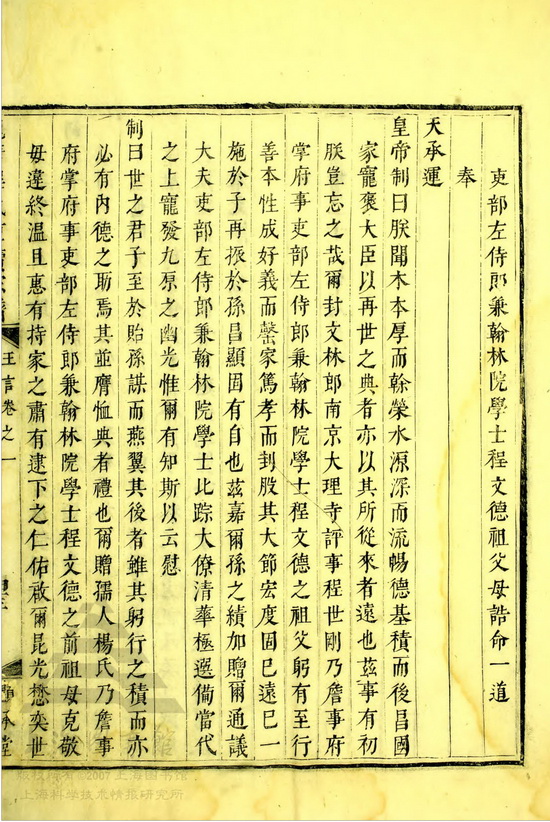 吏部左侍郎兼翰林院學士程文德祖父母誥命一道
奉
天承運
皇帝制曰朕聞木本厚而榦榮水源深而流暢德基積而後昌國
家寵褒大臣以再世之典者亦以其所從來者遠也茲事有初
朕豈忘之哉爾封文林郎南京大理寺評事程世剛乃詹事府
掌府事吏部左侍郎兼翰林院學士程文德之祖父躬有至行
善本性成好義而罄家篤孝而刲股其大節宏度固已遠巳一
施於子再振於孫昌顯固有自也茲嘉爾孫之績加贈爾通議
大夫吏部左侍郎兼翰林院學士比踪大僚清華極選備當代
之上寵發九原之幽光惟爾有知斯以云慰
制曰世之君子至於貽孫謀而燕翼其後者雖其躬行之積而亦
必有內德之助焉其並膺恤典者禮也爾贈孺人楊氏乃詹事
府掌府事吏部左侍郎兼翰林院學士程文德之前祖母克敬
毋違終温且惠有持家之肅有逮下之仁佑啟爾昆光懋奕世
王言卷之一
承堂
©2007上海图书馆
上海科学技术情报研究所